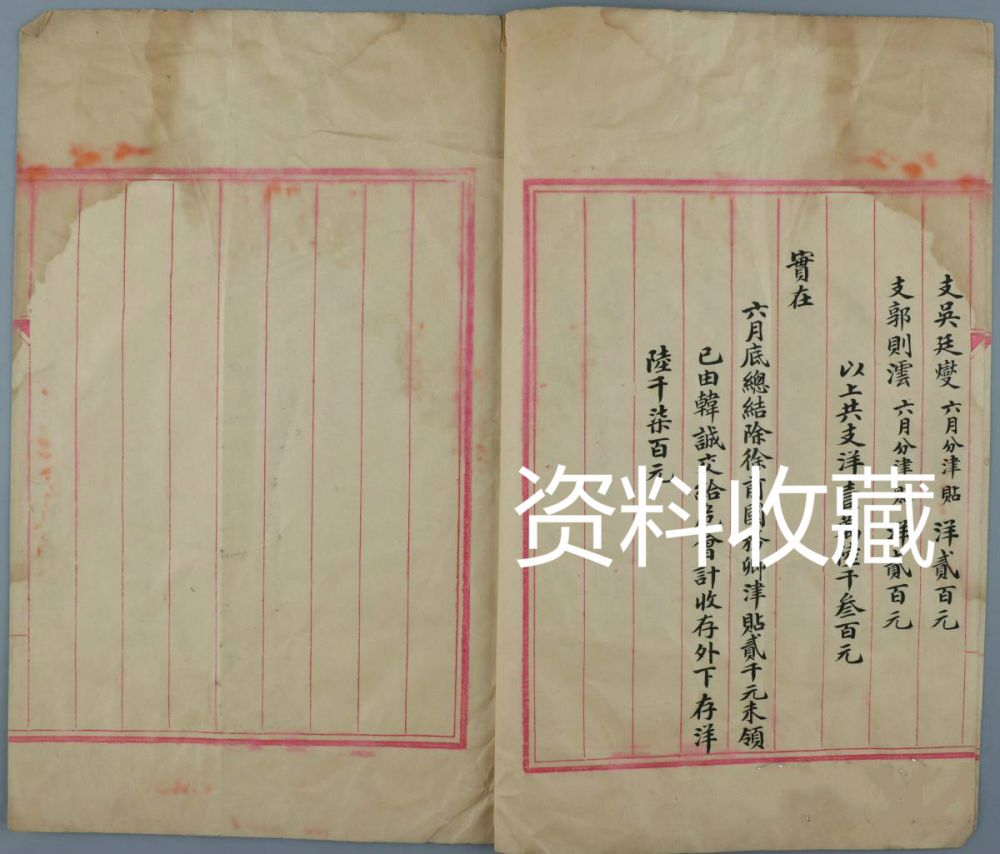 支吳廷燮 六月分津貼 洋貳百元
支郭則澐 六月分津貼 洋貳百元
以上共支洋壹萬陸千叁百元
實在
六月底總結除徐前國務卿津貼貳千元未領
已由韓誠交給 會計收存外下存洋
陸千柒百元
资料收藏